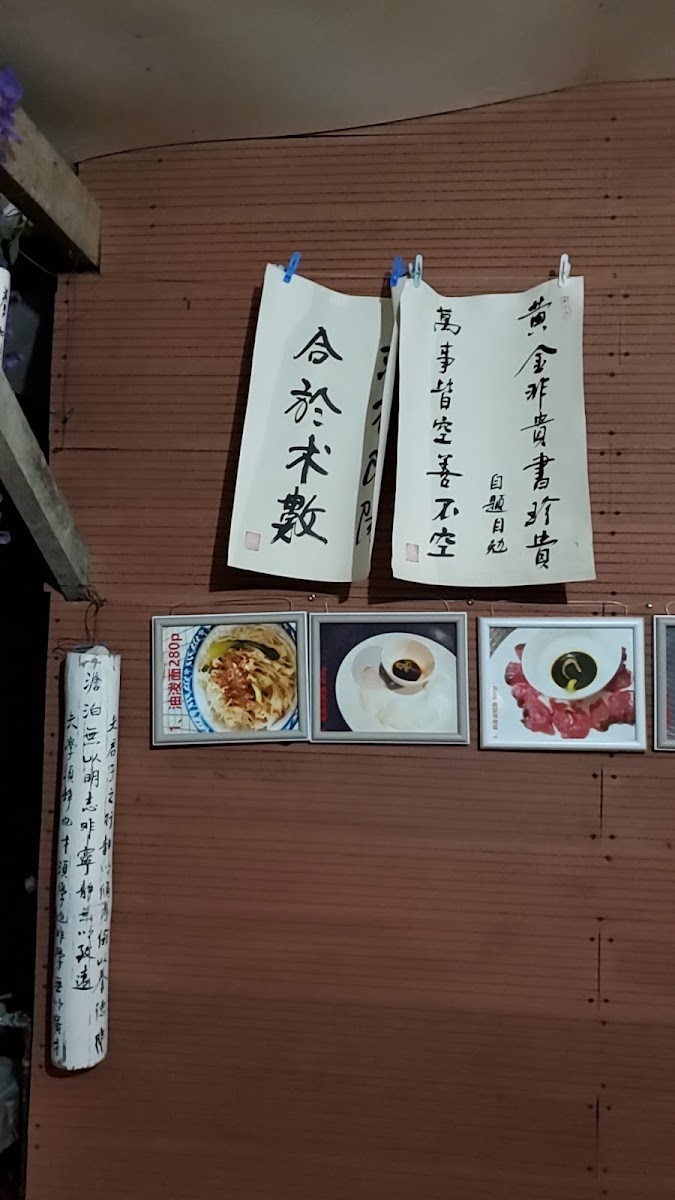 黄金非貴書珍貴
自題自勉
萬事皆空善不空
合於术數
1、油泼面280p
夫君子之行靜以修身儉以養德非
澹泊無以明志非寧靜無以致遠
夫學須靜也才須學也非學無以廣才